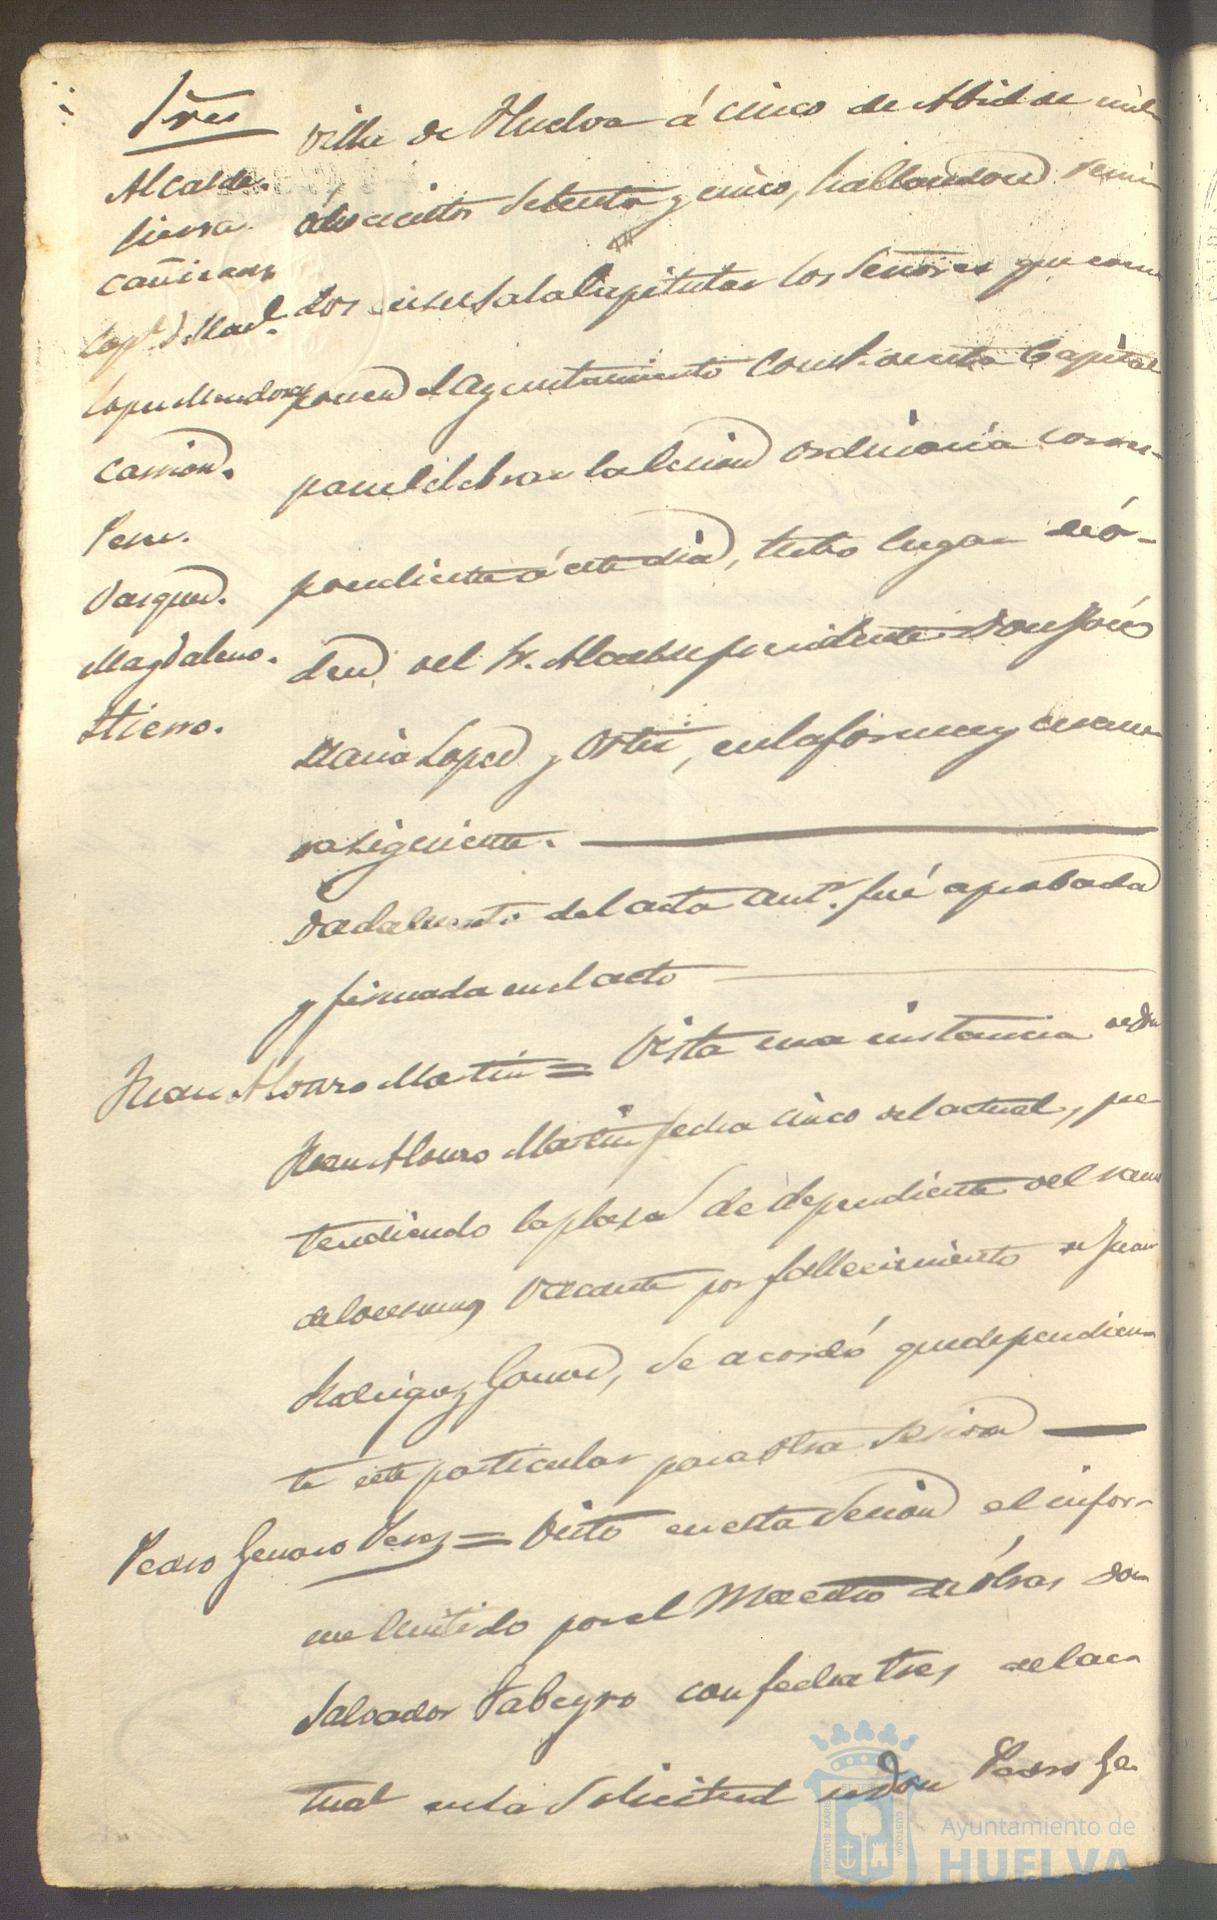 Sres
Alcalde.
Sierra.
Cañizares
Lopz. D. Manl.
Lopez Mendoza
Carrion.
Perez.
Vazquez.
Magdaleno.
Hierro.
Villa de Huelva á cinco de Abril de mil
ochocientos setenta y cinco, hallandose reuni
dos en su Sala Capitular los Señores que com
ponen el Ayuntamiento Const. de esta Capital
para celebrar la Sesion ordinaria corres-
pondiente á este dia, tubo lugar de ór-
den del Sr. Alcalde presidente Don José
Maria Lopez y Ortiz, en la forma y mane
ra siguiente.
Dada lectura del acta antr. fué aprobada
y firmada en el acto
Juan Alonso Martin = Vista una instancia de Don
Juan Alonso Martin fecha cinco del actual, pre
tendiendo la plaza de dependiente del ramo
de vacante por fallecimiento de Juan
Rodriguez Gomez, se acordó quede pendien-
te este particular para otra Sesion
Pedro Genaro Perez = Visto en esta Sesion el infor-
me emitido por el Maestro de óbras Don
Salvador Tabeyro con fecha tres del ac-
tual en la Solicitud de Don Pedro Ge
PORTUS MARIS
ET TERRAE
CUSTODIA
Ayuntamiento de
HUELVA